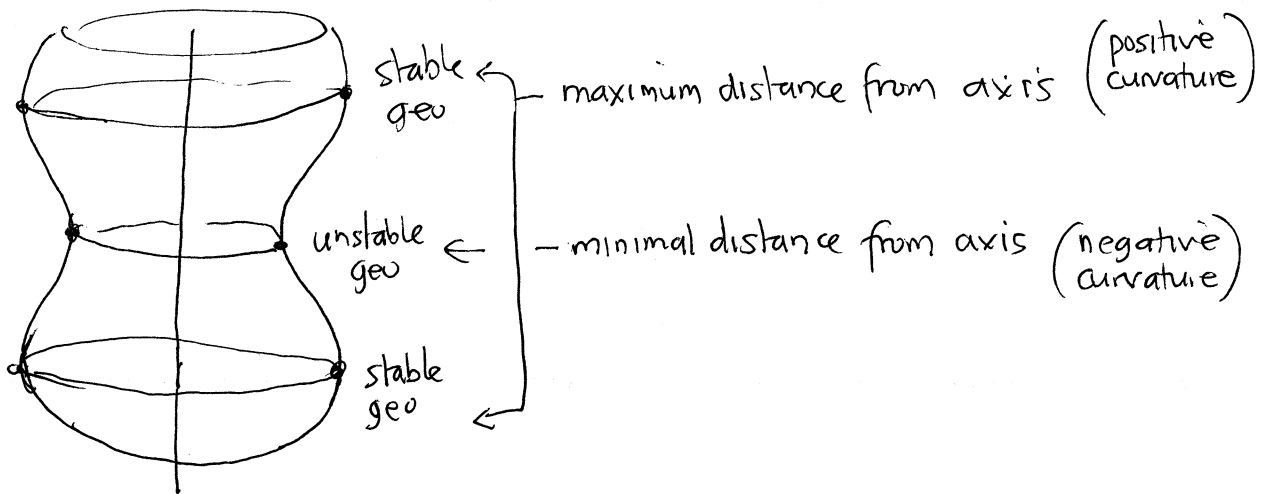 stable
geo
maximum distance from axis
(positive
curvature)
unstable
geo
minimal distance from axis
(negative
curvature)
stable
geo